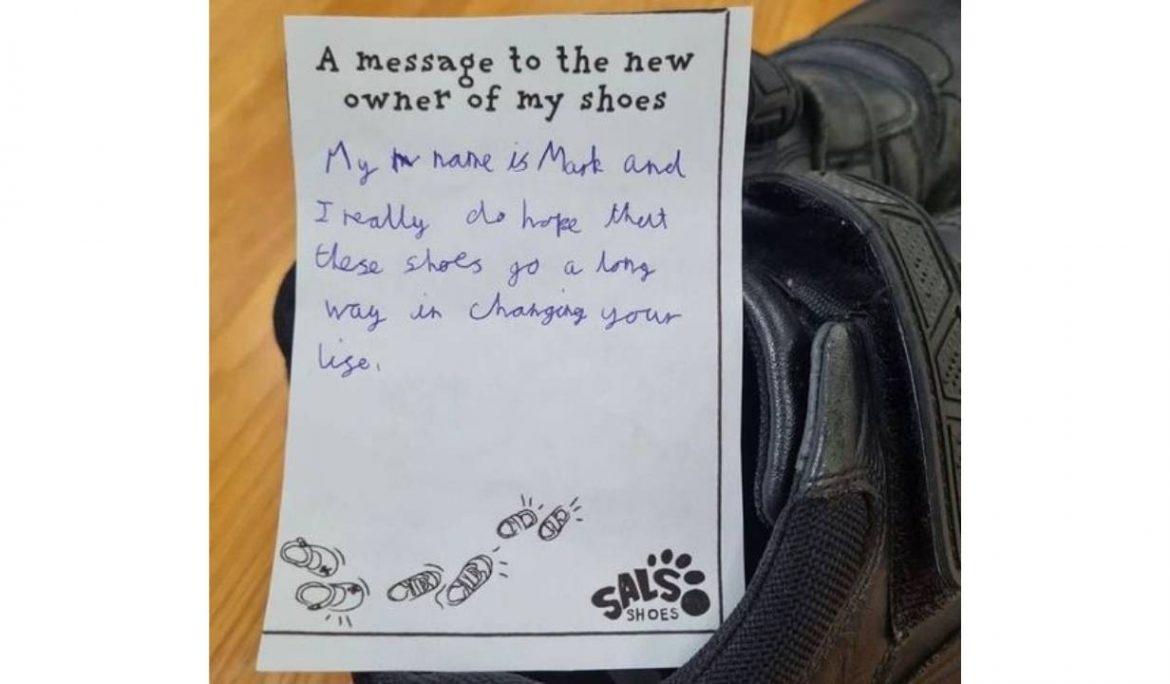 A message to the new
owner of my shoes
My name is Mark and
I really do hope that
these shoes go a long
way in changing your
lise.
SALS
SHOES